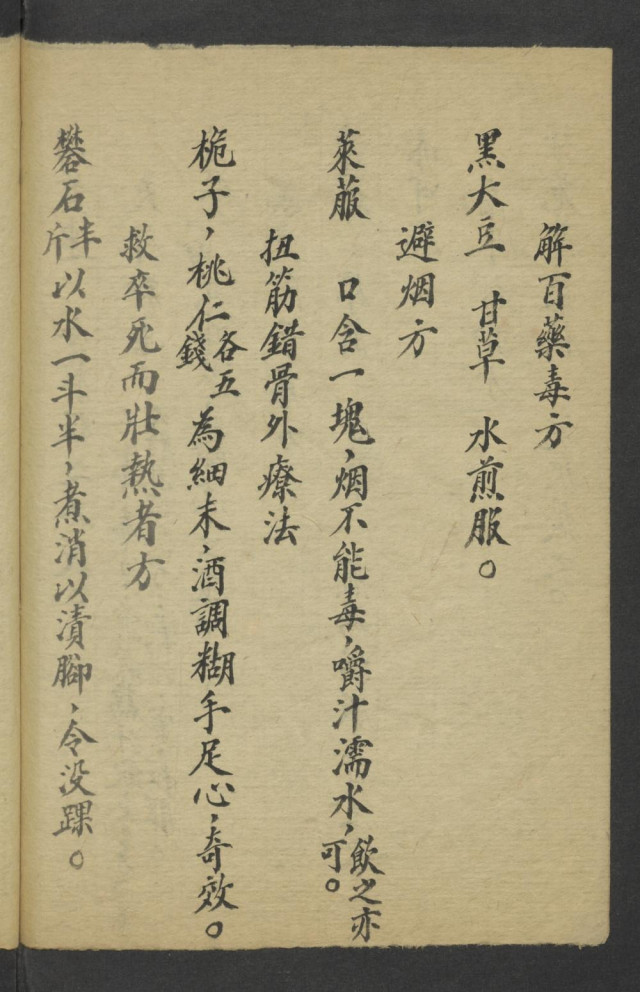 解百藥毒方
黑大豆 甘草 水煎服。
避烟方
萊菔 口含一塊，烟不能毒，嚼汁濡水，飲之亦可。
扭筋錯骨外療法
梔子，桃仁各五錢為細末，酒調糊手足心，奇效。
救卒死而壯熱者方
礬石半斤以水一斗半，煮消以漬腳，令没踝。